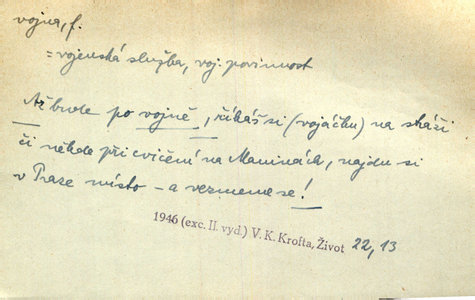 vojna, f.
= vojenská služba, voj. povinnost
Až bude po vojně, říkáš si (vojáčku) na stráži
či někde při cvičení na Maninách, najdu si
v Praze místo – a vezmeme se!
1946 (exc. II. vyd.) V. K. Krofta, Život 22, 13